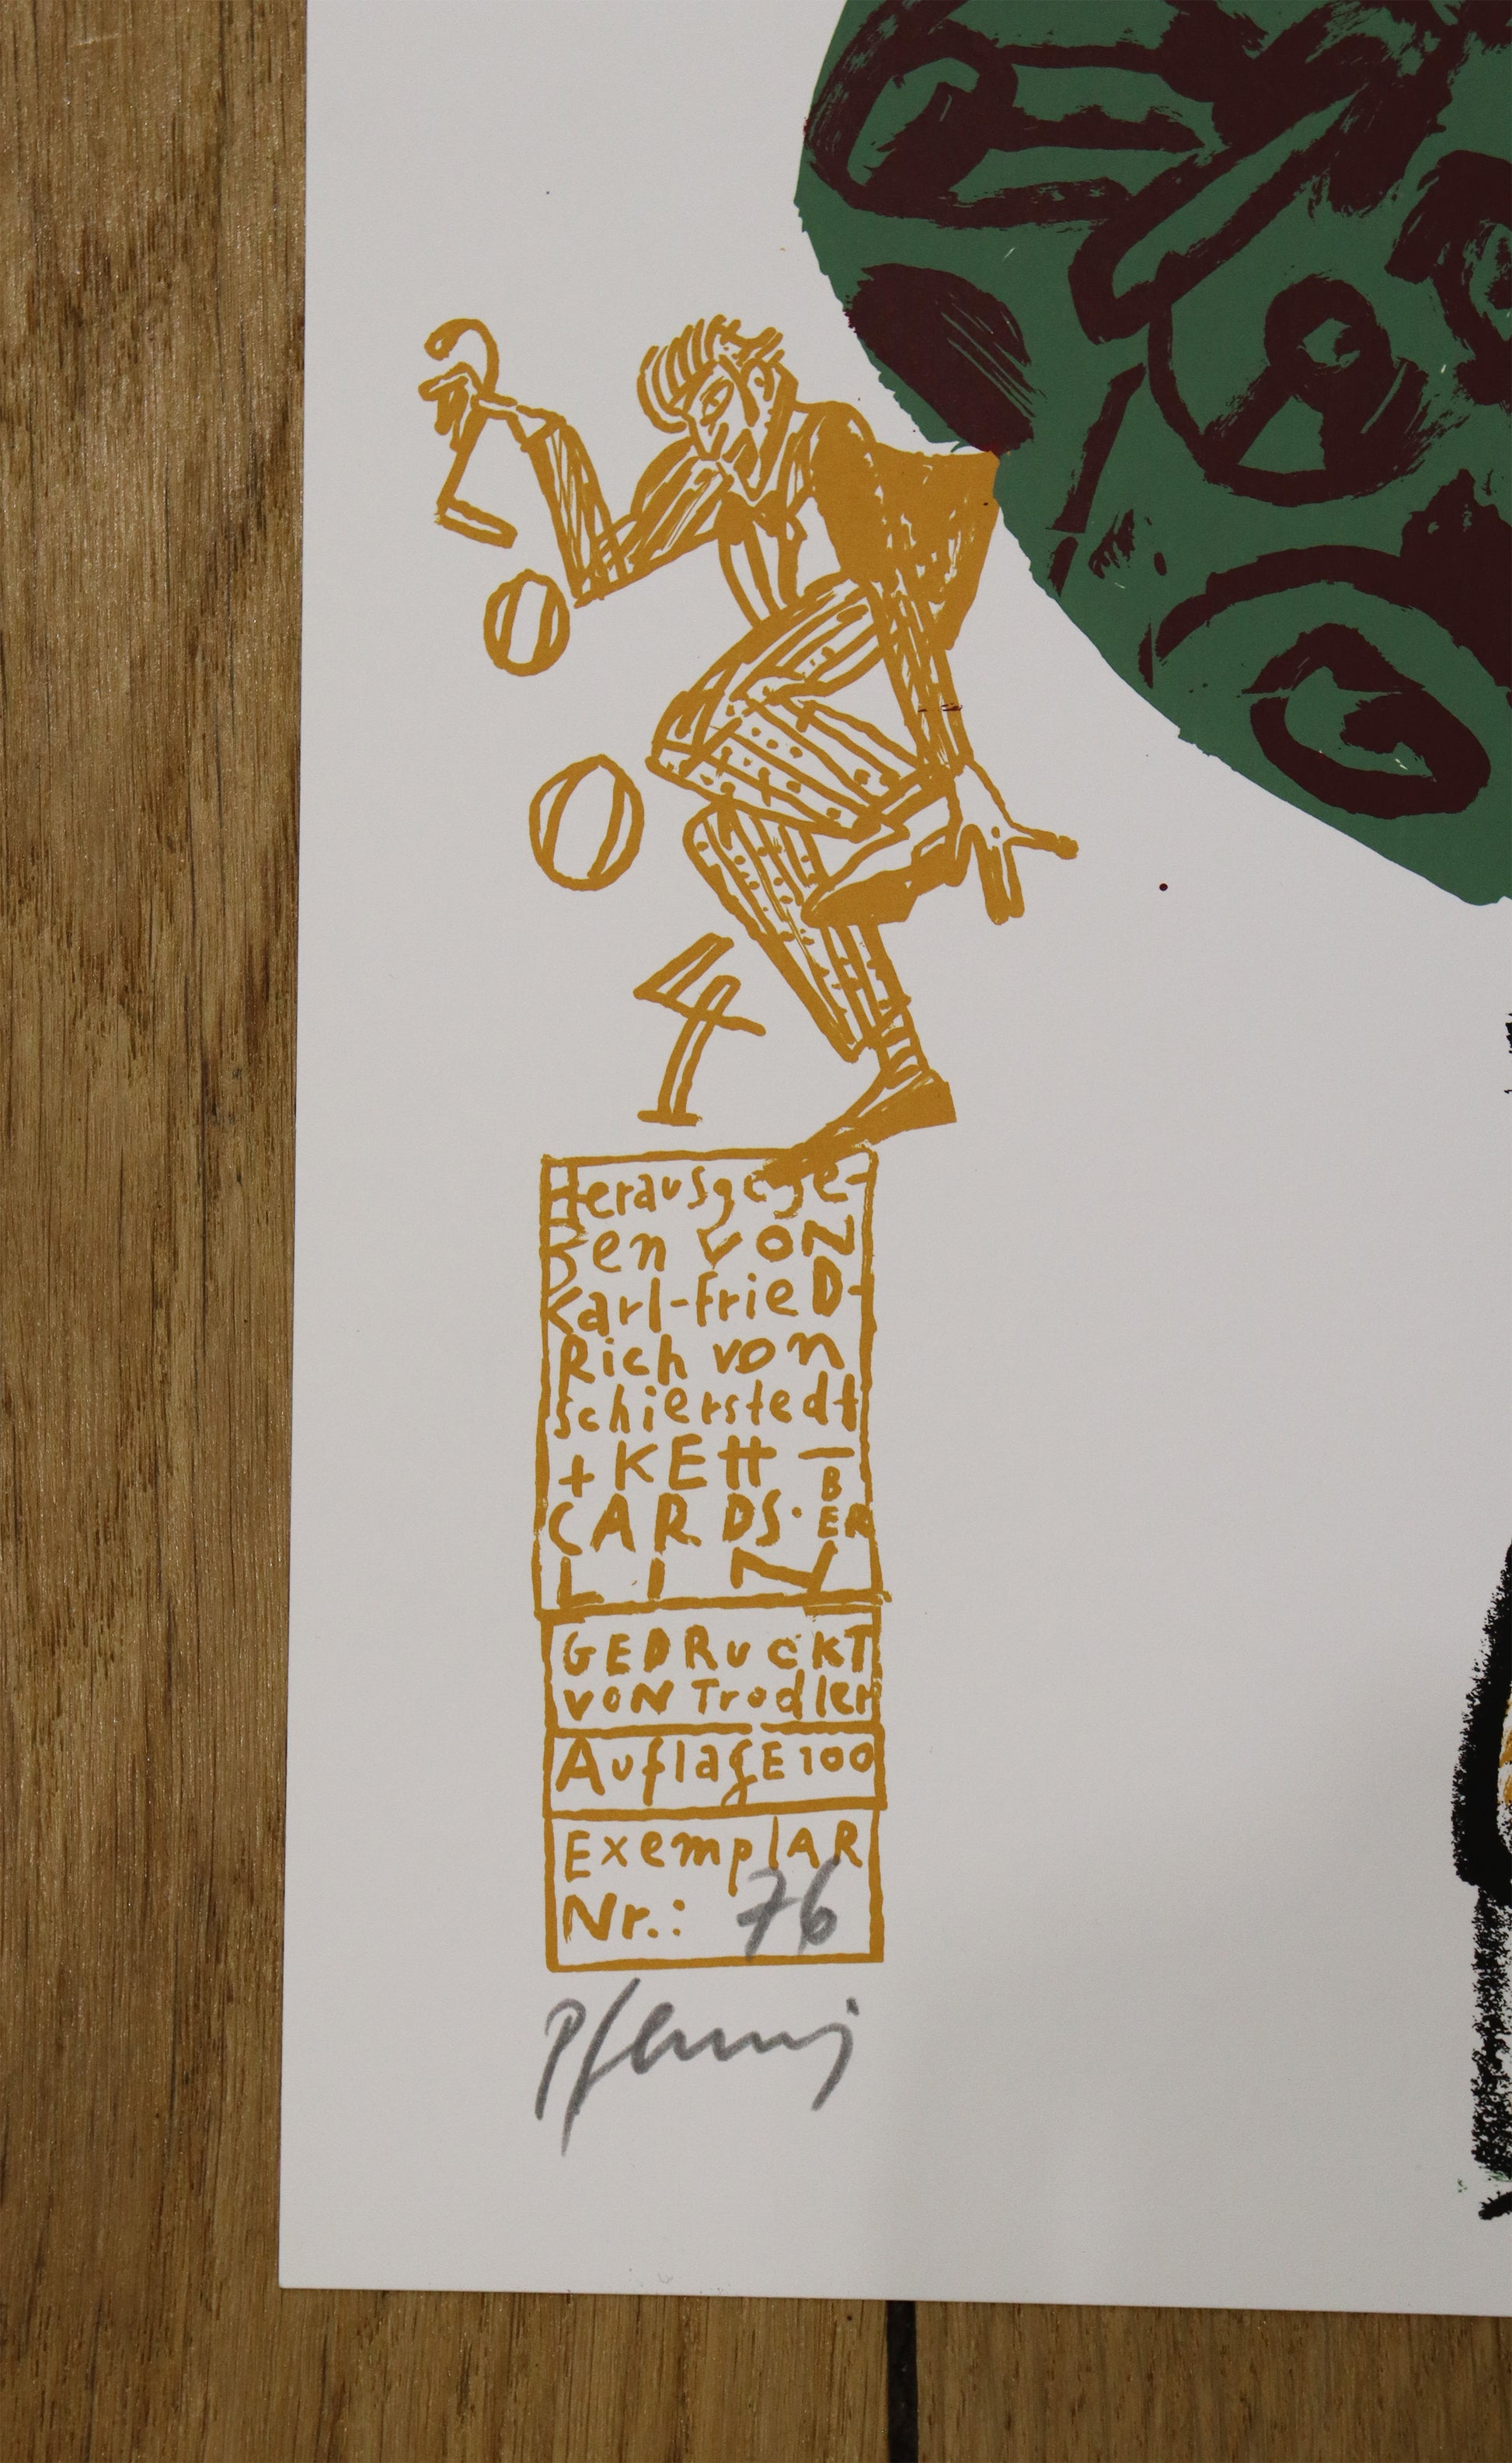 2
0
0
4
Herausgege-
Ben von
Karl-FrieD-
Rich von
schierstedt
+ KETT-
CARDS·BER
LIN
GEDRuckT
voN Trodler
AuflagE 100
ExemplAR
Nr.: 76
Pfennig